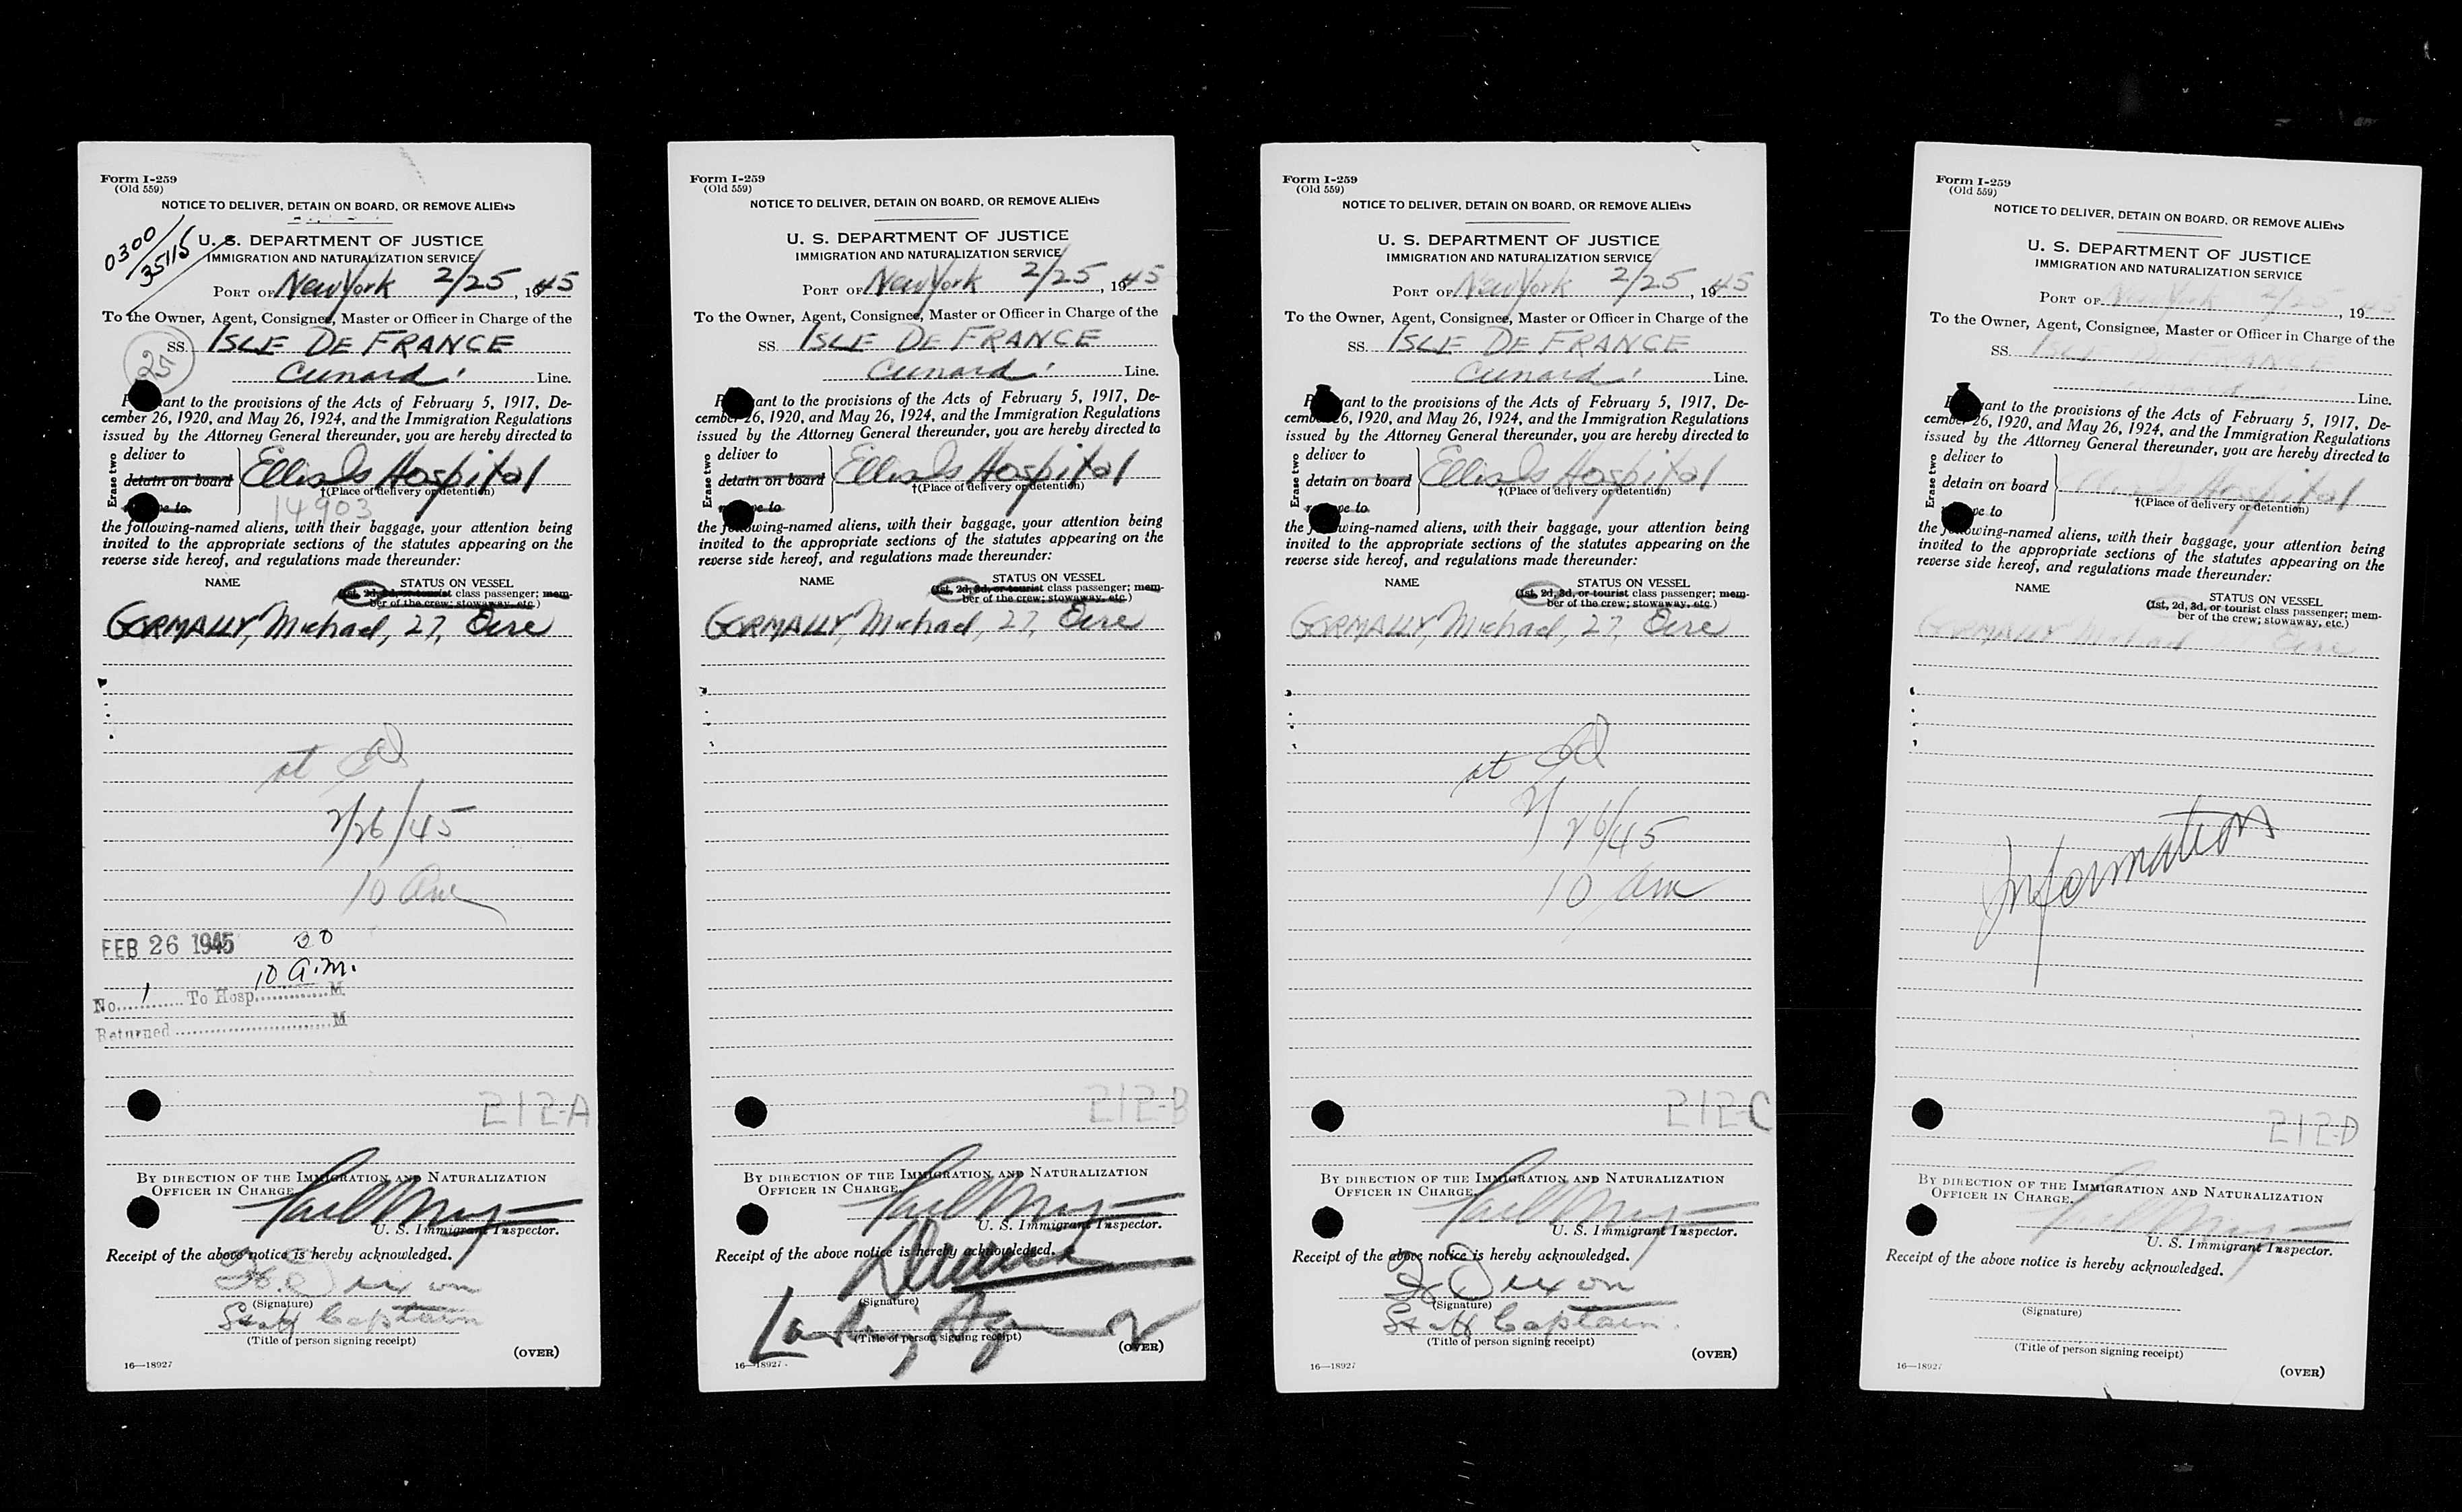 Form I-259
(Old 559)
NOTICE TO DELIVER, DETAIN ON BOARD, OR REMOVE ALIENS
0300
35115
U. S. DEPARTMENT OF JUSTICE
IMMIGRATION AND NATURALIZATION SERVICE
PORT OF New York 2/25, 1945
To the Owner, Agent, Consignee, Master or Officer in Charge of the
25
SS. ISLE DE FRANCE
Cunard Line.
ant to the provisions of the Acts of February 5, 1917, De-
cember 26, 1920, and May 26, 1924, and the Immigration Regulations
issued by the Attorney General thereunder, you are hereby directed to
Erase two
deliver to
detain on board
Ellis Is Hospital
†(Place of delivery or detention)
14903
to
the following-named aliens, with their baggage, your attention being
invited to the appropriate sections of the statutes appearing on the
reverse side hereof, and regulations made thereunder:
NAME STATUS ON VESSEL
(1st, 2d, 3d, or tourist class passenger; mem-
ber of the crew; stowaway, etc.)
GORMALLY, Michael, 27, Eire
at
2/26/45
10 am
FEB 26 1945
10 a.m.
No. 1 To Hosp. M
Returned M
212-A
BY DIRECTION OF THE IMMIGRATION AND NATURALIZATION
OFFICER IN CHARGE.
U. S. Immigrant Inspector.
Receipt of the above notice is hereby acknowledged.
Dixon
(Signature)
Staff Captain
(Title of person signing receipt)
(OVER)
16—18927
Form I-259
(Old 559)
NOTICE TO DELIVER, DETAIN ON BOARD, OR REMOVE ALIENS
U. S. DEPARTMENT OF JUSTICE
IMMIGRATION AND NATURALIZATION SERVICE
PORT OF New York 2/25, 1945
To the Owner, Agent, Consignee, Master or Officer in Charge of the
SS. ISLE DE FRANCE
Cunard Line.
ant to the provisions of the Acts of February 5, 1917, De-
cember 26, 1920, and May 26, 1924, and the Immigration Regulations
issued by the Attorney General thereunder, you are hereby directed to
Erase two
deliver to
detain on board
Ellis Is Hospital
†(Place of delivery or detention)
to
the following-named aliens, with their baggage, your attention being
invited to the appropriate sections of the statutes appearing on the
reverse side hereof, and regulations made thereunder:
NAME STATUS ON VESSEL
(1st, 2d, 3d, or tourist class passenger; mem-
ber of the crew; stowaway, etc.)
GORMALLY, Michael, 27, Eire
212-B
BY DIRECTION OF THE IMMIGRATION AND NATURALIZATION
OFFICER IN CHARGE.
U. S. Immigrant Inspector.
Receipt of the above notice is hereby acknowledged.
(Signature)
(Title of person signing receipt)
(OVER)
16—18927
Form I-259
(Old 559)
NOTICE TO DELIVER, DETAIN ON BOARD, OR REMOVE ALIENS
U. S. DEPARTMENT OF JUSTICE
IMMIGRATION AND NATURALIZATION SERVICE
PORT OF New York 2/25, 1945
To the Owner, Agent, Consignee, Master or Officer in Charge of the
SS. ISLE DE FRANCE
Cunard Line.
ant to the provisions of the Acts of February 5, 1917, De-
cember 26, 1920, and May 26, 1924, and the Immigration Regulations
issued by the Attorney General thereunder, you are hereby directed to
Erase two
deliver to
detain on board
Ellis Is Hospital
†(Place of delivery or detention)
to
the following-named aliens, with their baggage, your attention being
invited to the appropriate sections of the statutes appearing on the
reverse side hereof, and regulations made thereunder:
NAME STATUS ON VESSEL
(1st, 2d, 3d, or tourist class passenger; mem-
ber of the crew; stowaway, etc.)
GORMALLY, Michael, 27, Eire
at
2/26/45
10 am
212-C
BY DIRECTION OF THE IMMIGRATION AND NATURALIZATION
OFFICER IN CHARGE.
U. S. Immigrant Inspector.
Receipt of the above notice is hereby acknowledged.
Dixon
(Signature)
Staff Captain
(Title of person signing receipt)
(OVER)
16—18927
Form I-259
(Old 559)
NOTICE TO DELIVER, DETAIN ON BOARD, OR REMOVE ALIENS
U. S. DEPARTMENT OF JUSTICE
IMMIGRATION AND NATURALIZATION SERVICE
PORT OF New York 2/25, 1945
To the Owner, Agent, Consignee, Master or Officer in Charge of the
SS. ISLE DE FRANCE
Cunard Line.
ant to the provisions of the Acts of February 5, 1917, De-
cember 26, 1920, and May 26, 1924, and the Immigration Regulations
issued by the Attorney General thereunder, you are hereby directed to
Erase two
deliver to
detain on board
Ellis Is Hospital
†(Place of delivery or detention)
to
the following-named aliens, with their baggage, your attention being
invited to the appropriate sections of the statutes appearing on the
reverse side hereof, and regulations made thereunder:
NAME STATUS ON VESSEL
(1st, 2d, 3d, or tourist class passenger; mem-
ber of the crew; stowaway, etc.)
GORMALLY Michael Eire
Information
212-D
BY DIRECTION OF THE IMMIGRATION AND NATURALIZATION
OFFICER IN CHARGE.
U. S. Immigrant Inspector.
Receipt of the above notice is hereby acknowledged.
(Signature)
(Title of person signing receipt)
(OVER)
16—18927